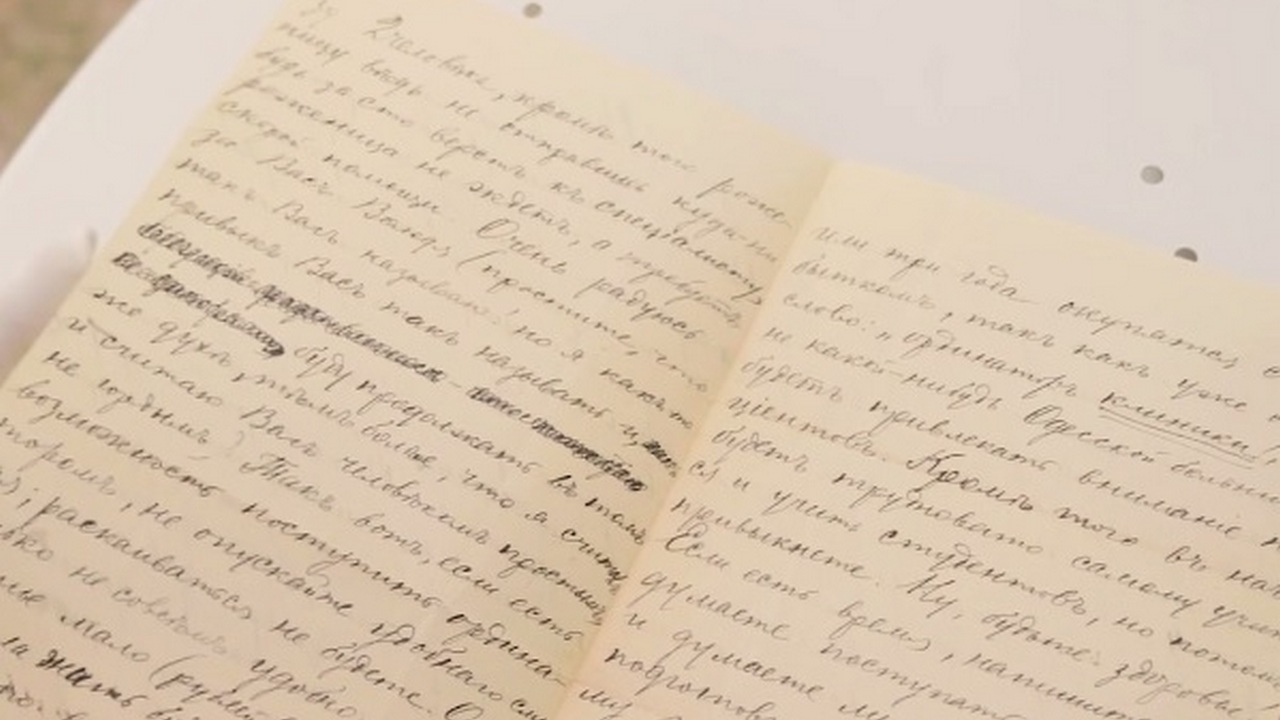 2 человѣка, кромѣ того роже-
ницу ведь не отправишь куда-ни-
будь за сто верстъ къ специалисту,
роженица не ждетъ, а требуетъ
скорой помощи. Очень радуюсь
за Васъ Валя (простите, что
такъ Васъ называю, но я какъ то
привыкъ Васъ такъ называть и
буду продолжать въ томъ
же духѣ тѣмъ болѣе, что я считалъ
и считаю Васъ человѣкомъ простымъ,
не гордымъ) Такъ вотъ, если есть
возможность поступить ордина-
торомъ, не опускайте удобнаго
раскаиваться не будете.
не удобно
мало
или три года окупятся
быткомъ, такъ какъ уже
слово: „ординаторъ клиники,
не какой-нибудь Одесской больни
будетъ привлекать вниманіе
ціентовъ. Кромѣ того въ нач
будетъ трудновато самому учи
ся и учить студентовъ, но потомъ
привыкнете. Ну, будьте здоровы
Если есть время, напишит
думаете поступать
и думаете
подготов
му